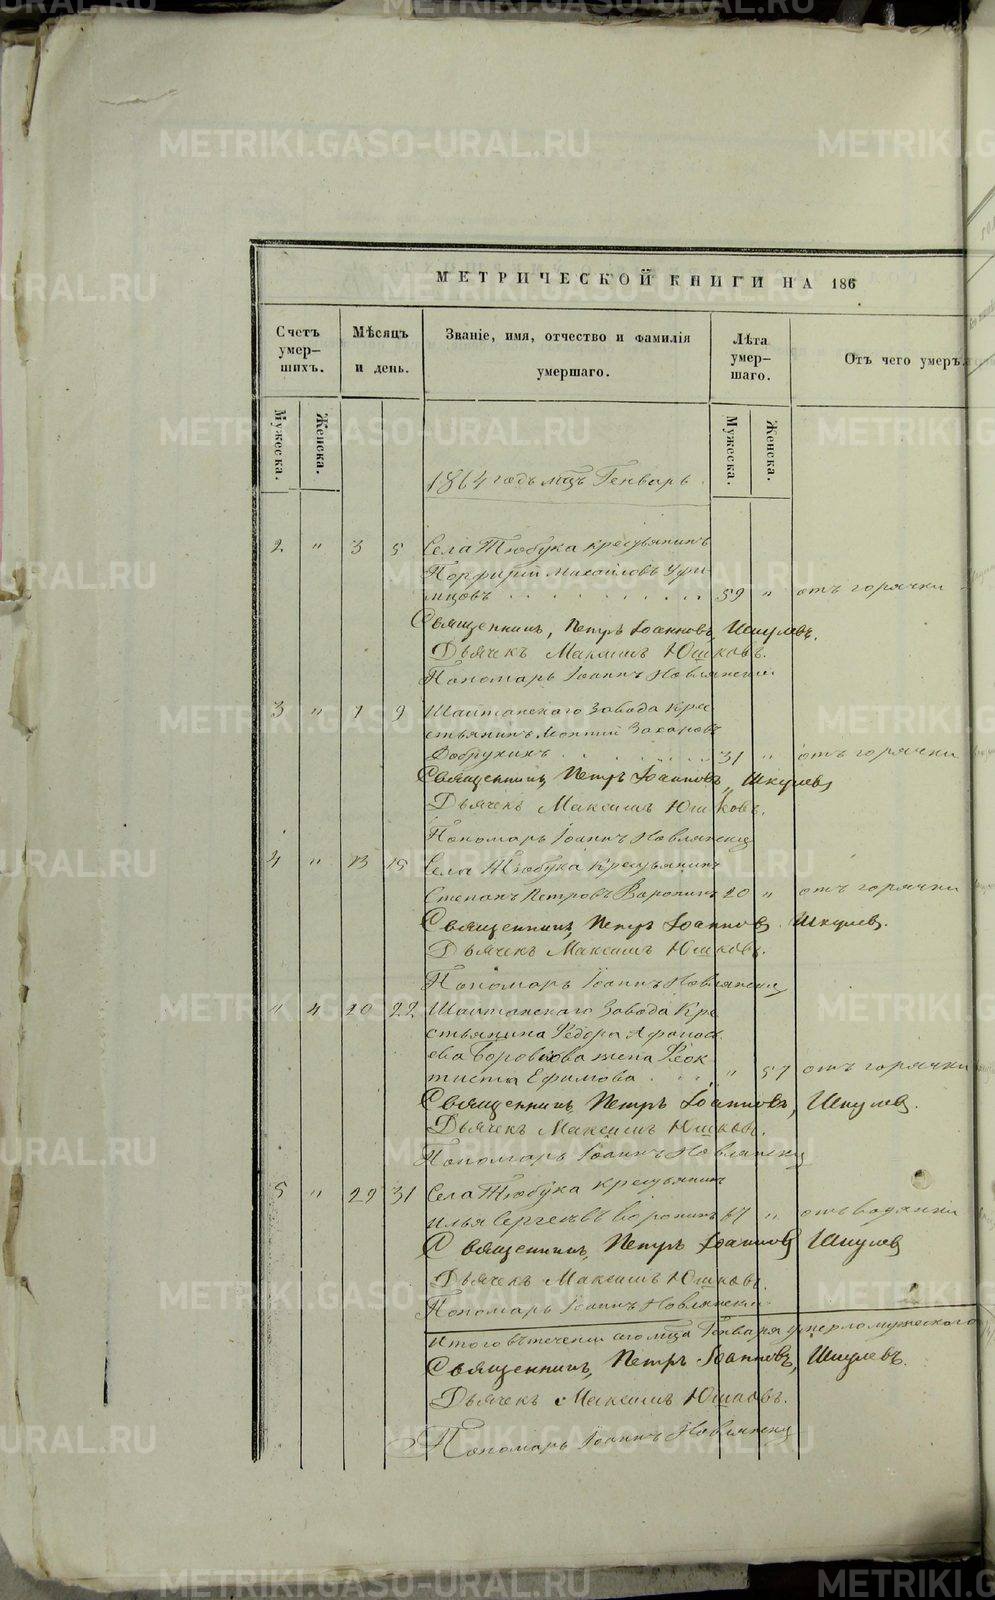 METRIKI.GASO-URAL.RU
МЕТРИЧЕСКОЙ КНИГИ НА 186
Счетъ умер-шихъ.
Мѣсяцъ и день.
Званіе, имя, отчество и фамилія умершаго.
Лѣта умер-шаго.
Отъ чего умеръ.
Мужеска.
Женска.
Мужеска.
Женска.
1864 годъ мцъ Генварь
2 " 3 5 Села Тюбука крестьянинъ
Порфирій Михайловъ Уфи-
мцовъ 59 " отъ горячки
Священникъ, Петръ Іоанновъ, Шкулевъ.
Дьячекъ Максимъ Юшковъ.
Пономарь Іоаннъ Новлянскій
3 " 7 9 Шайтанскаго Завода Кре
стьянинъ Леонтій Захаровъ
31 " отъ горячки
Священникъ, Петръ Іоанновъ, Шкулевъ
Дьячекъ Максимъ Юшковъ.
Пономарь Іоаннъ Новлянскій
4 " 13 15 Села Тюбука Крестьянинъ
Степанъ Петровъ Воронинъ 20 " отъ горячки
Священникъ, Петръ Іоанновъ Шкулев.
Дьячекъ Максимъ Юшковъ.
Пономарь Іоаннъ Новлянскій
" 4 20 22 Шайтанскаго Завода Кре
стьянина Федора Афанась
ева жена Феок
тиста Ефимова " 57 отъ горячки
Священникъ, Петръ Іоанновъ, Шкулев.
Дьячекъ Максимъ Юшковъ.
Пономарь Іоаннъ Новлянскій
5 " 29 31 Села Тюбука крестьянинъ
Илья Сергеевъ Воронинъ 67 " отъ водянки
Священникъ, Петръ Іоанновъ Шкулев
Дьячекъ Максимъ Юшковъ.
Пономарь Іоаннъ Новлянскій
Итого въ теченіи сего мца Генваря умерло мужескаго
Священникъ, Петръ Іоанновъ, Шкулевъ.
Дьячекъ Максимъ Юшковъ.
Пономарь Іоаннъ Новлянскій